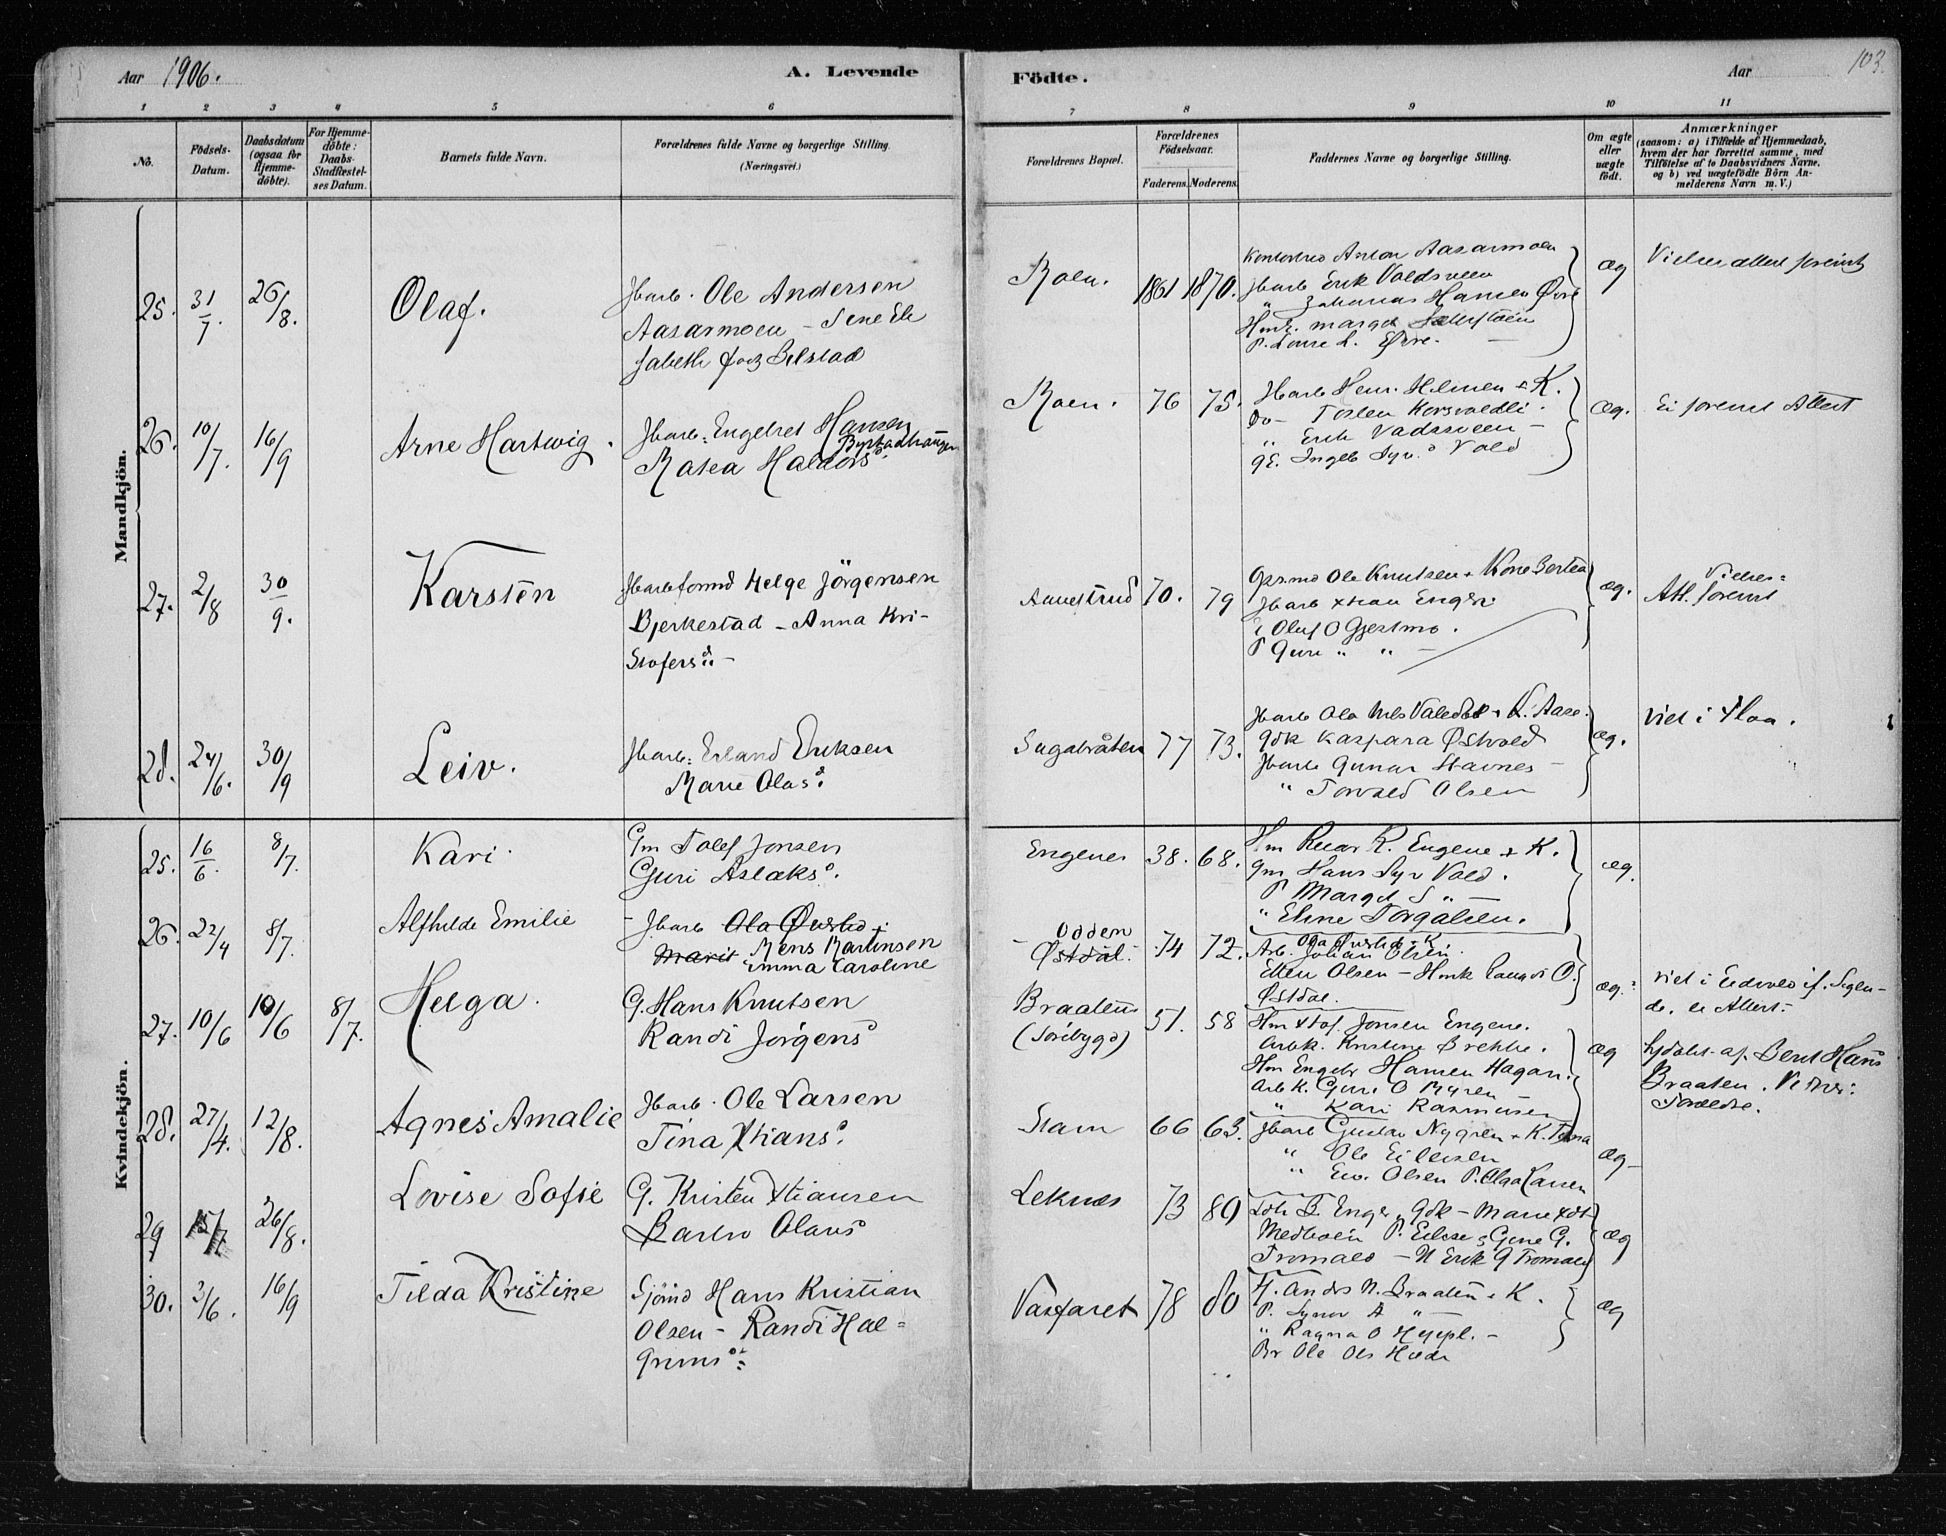 Aar 1906. A. Levende
Födte. Aar 103.
1 2 3 4 5 6
7 8 9 10 11
No. Födsels-Datum. Daabsdatum (ogsaa for Hjemme-döbte). For Hjemme-döbte: Daabs-Stadfæstel-ses Datum. Barnets fulde Navn. Forældrenes fulde Navne og borgerlige Stilling. (Næringsvei.)
Forældrenes Bopæl. Forældrenes Födselsaar. Faderens. Moderens. Faddernes Navne og borgerlige Stilling. Om ægte eller uægte födt. Anmærkninger (saasom: a) i Tilfælde af Hjemmedaab, hvem der har forrettet samme, med Tilföielse af to Daabsvidners Navne, og b) ved uægtefödte Börn An-melderens Navn m. V.)
Mandkjön.
25. 31/7. 26/8. Olaf. Jbarb. Ole Andersen
Aasarmoen – Sene Eli
sabeth født Bilstad
Roen. 1861 1870. Anton Aasarmoen
Jbarb Erik Valdsveen
" Johannes Hansen Øvre
P. Louise L. Øvre.
æg
26. 10/7. 16/9 Arne Hartwig. Jbarb: Engebret Hansen
Bystadhaugen
Matea Haldors d
Roen. 76 75. Jbarb Henr. Helmen & K.
Do – Tosten Korsvoldli.
" Erik Vadsveen –
gE. Ingeb Syv. d Vold
æg. Ei forevist Attest
27. 2/8 30/9. Karsten Jbarbformd Helge Jörgensen
Bjerkestad – Anna Kri-
stofersd: –
Annestrud 70. 79 Gbrmd Ole Knutsen & Kone Bertea
Jbarb Xtian Enger
Oluf O Gjestmo.
P Guri " " –
æg. Vielses=
Att. forevist
28. 24/6. 30/9 Leiv. Jbarb: Erland Eriksen
Marie Olas d.
Sagabråten 77 73. Jbarb Ola Nels Valedal & K. Aase.
Gdk Kaspara Østvold
Jbarb Gunar Stavnes –
" Torvald Olsen
æg. viet i Flaa.
Kvindekjön.
25. 16/6. 8/7. Kari. Gm Tolef Jonsen
Guri Aslaks d.
Engene 38. 68. Hm Reiar R. Engene & K.
gm Hans Syv Vold.
P Margit S " –
" Eline Torgalsen.
æg.
26. 22/4 8/7. Alfhilde Emilie – Jbarb Ola Øvsted
Marit Mens Martinsen
Emma Caroline
– Odden
Østdal. 74 72. Ola Øvsted & K.
Arb. Johan Olsen.
Ellen Olsen – Hmk Laugi O.
Østdal.
æg. viet i Eidsvold if. Sigen-
de. ei Attest.
27. 10/6 10/6 8/7. Helga. G. Hans Knutsen
Randi Jørgens d
Braaten
(Sørbygd) 51. 58 Hm Xtof. Jonsen Engene.
Arbk. Kristine Brekke.
Hm Engebr Hansen Hagan.
Arb K. Guri O Myren
" Kari Rasmusen
æg hjdøbt af. Bent Hans
Braaten. Vidner:
Foreldre.
28. 27/4. 12/8. Agnes Amalie Jbarb. Ole Larsen
Tina Xtians d.
Stam 66 63. Jbarb Gustav Nygren & K. Tina
" Ole Eilersen
" Ew. Olsen P. Olga Larsen
æg –
29 15/7 26/8. Lovise Sofie G. Kristen Xtiansen
Barbro Olaus d
Leknes 73 80 Ldh B. Enger, Gdk – Marie Xdt
Medhoien P. Eilise & Gine G.
Tromald – U Erik G Tromald
æg
30. 3/6. 16/9 Tilda Kristine Sjömd Hans Kristian
Olsen – Randi Hal=
grims d:
Vasfaret 78 80 H. Andrs N. Braaten & K.
P. Synov A " –
" Ragna O Hyppl. –
Br Ole Ols Hæde
æg